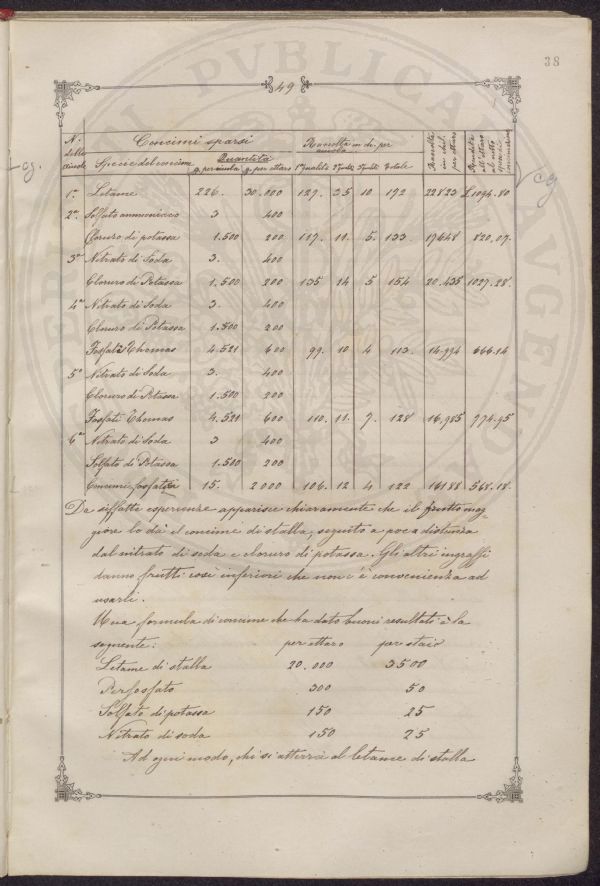 38
49
N.° delle aiuole | Concimi sparsi | Raccolta in ch. per aiuola | Raccolta in chil. per ettaro | Rendita all'ettaro al netto
Specie del concime | Quantità | 1ª qualità | 2ª qual. | 3ª qual. | Totale
g. per aiuola | g. per ettaro
1ª Letame 226. 30.000 127. 35 10 172 22823 £1094.80
2ª Solfato ammoniaco 3 400
Cloruro di potassa 1.500 200 117. 11. 5. 133. 17648 820.07.
3ª Nitrato di Soda 3. 400
Cloruro di Potassa 1.500 200 135 14 5 154 20.435 1027.28.
4ª Nitrato di Soda 3. 400
Cloruro di Potassa 1.500 200
Fosfati Thomas 4.521 600 99. 10 4 113. 14.994 666.14
5ª Nitrato di Soda 3. 400
Cloruro di Potassa 1.500 200
Fosfati Thomas 4.521 600 110. 11. 7. 128 16,985 774.95
6ª Nitrato di Soda 3 400
Solfato di Potassa 1.500 200
Concime fosfato 15. 2000 106. 12 4 122 16188 568.18.
Da siffatte esperienze apparisce chiaramente che il frutto mag-
giore lo dà il concime di stalla, seguito a poca distanza
dal nitrato di soda e cloruro di potassa. Gli altri ingrassi
danno frutti così inferiori che non c'è convenienza ad
usarli.
Una formula di concime che ha dato buoni resultati è la
seguente: per ettaro per staio
Letame di stalla 20.000 3500
Perfosfato 300 50
Solfato di potassa 150 25
Nitrato di soda 150 25
Ad ogni modo, chi si atterrà al letame di stalla